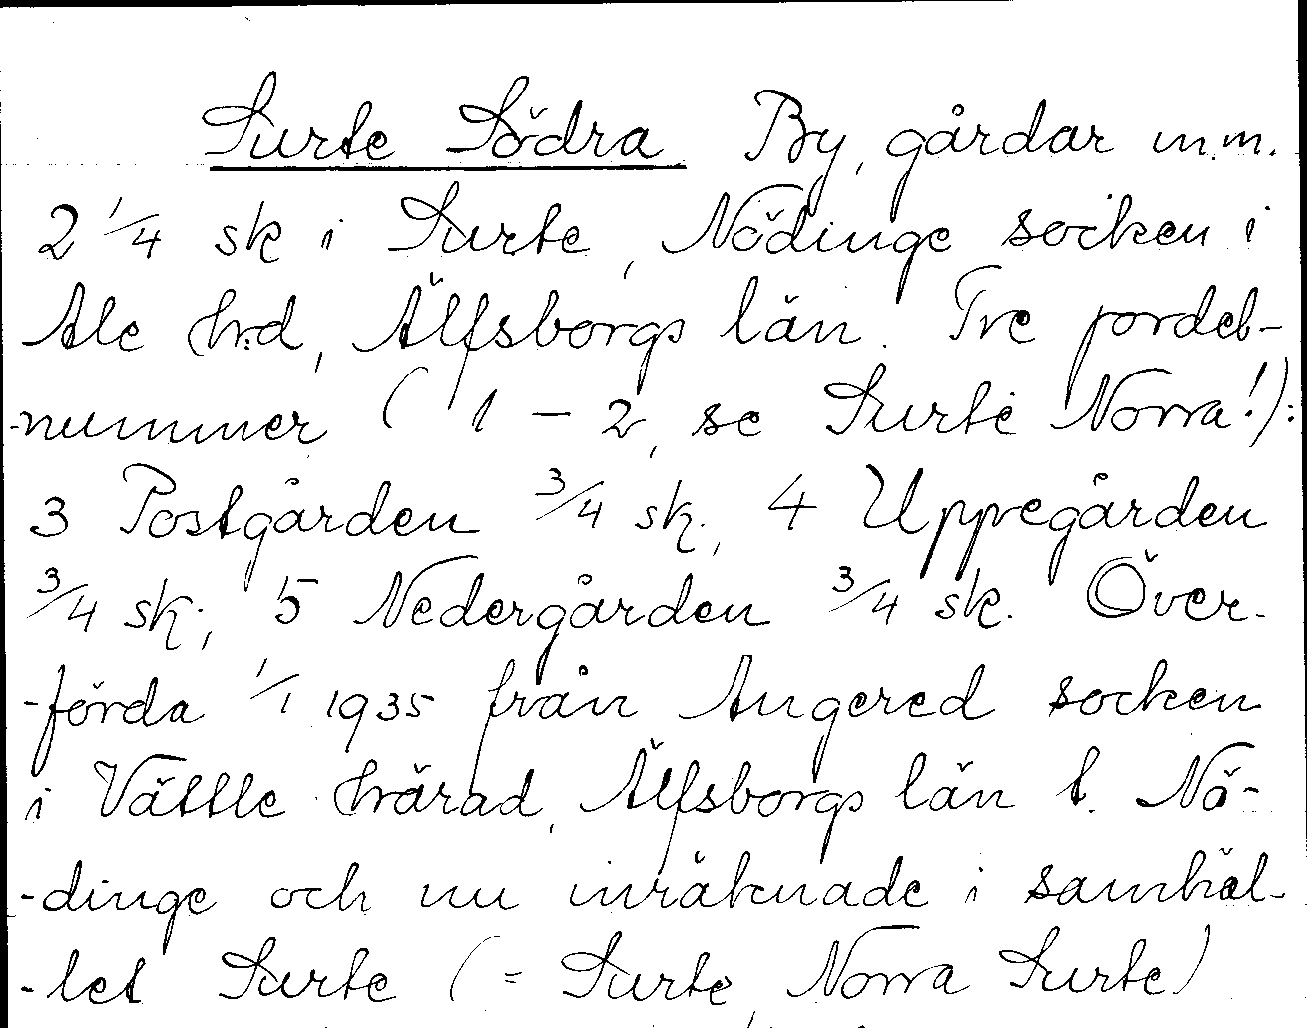 Surte Södra By, gårdar m.m.
2 1/4 sk i Surte, Nödinge socken i
Ale hrd, Älfsborgs län. Tre jordeb-
-nummer ( 1 - 2, se Surte Norra!):
3 Postgården 3/4 sk., 4 Uppegården
3/4 sk; 5 Nedergården 3/4 sk. Över-
-förda 1/1 1935 från Angered socken
i Vättle härad, Älfsborgs län t. Nö-
-dinge och nu inräknade i samhäl-
-let Surte (= Surte, Norra Surte)